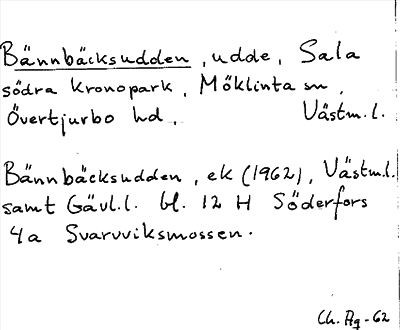 Bännbäcksudden, udde, Sala
södra kronopark, Möklinta sn,
Övertjurbo hd, Västm.l.
Bännbäcksudden, ek (1962), Västm.l.
samt Gävl.l. bl. 12 H Söderfors
4a Svarvviksmossen.
Ch. Ag-62